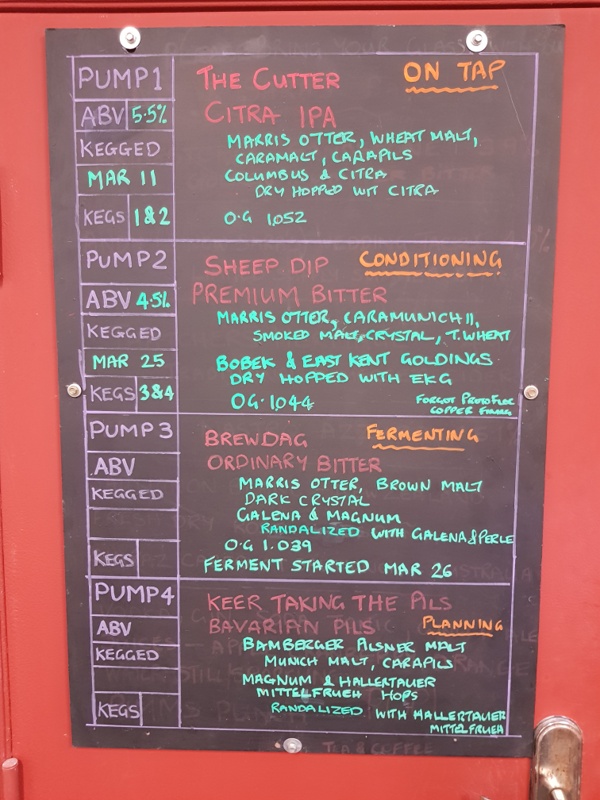 PUMP 1 THE CUTTER ON TAP
ABV 5.5% CITRA IPA
MARRIS OTTER, WHEAT MALT,
KEGGED CARAMALT, CARAPILS
MAR 11 COLUMBUS & CITRA
DRY HOPPED WIT CITRA
KEGS 1&2 O.G 1052
PUMP 2 SHEEP DIP CONDITIONING
ABV 4.5% PREMIUM BITTER
MARRIS OTTER, CARAMUNICH II,
KEGGED SMOKED MALT, CRYSTAL, T.WHEAT
MAR 25 BOBEK & EAST KENT GOLDINGS
DRY HOPPED WITH EKG
KEGS 3&4 OG.1044 FORGOT PROTOFLOC
COPPER FININGS
PUMP 3 BREWDAG FERMENTING
ABV ORDINARY BITTER
KEGGED MARRIS OTTER, BROWN MALT
DARK CRYSTAL
GALENA & MAGNUM
RANDALIZED WITH GALENA & PERLE
KEGS O.G 1.039
FERMENT STARTED MAR 26
PUMP 4 KEER TAKING THE PILS
ABV BAVARIAN PILS PLANNING
KEGGED BAMBERGER PILSNER MALT
MUNICH MALT, CARAPILS
MAGNUM & HALLERTAUER
MITTELFRUEH HOPS
KEGS RANDALIZED WITH HALLERTAUER
MITTELFRUEH
TEA & COFFEE